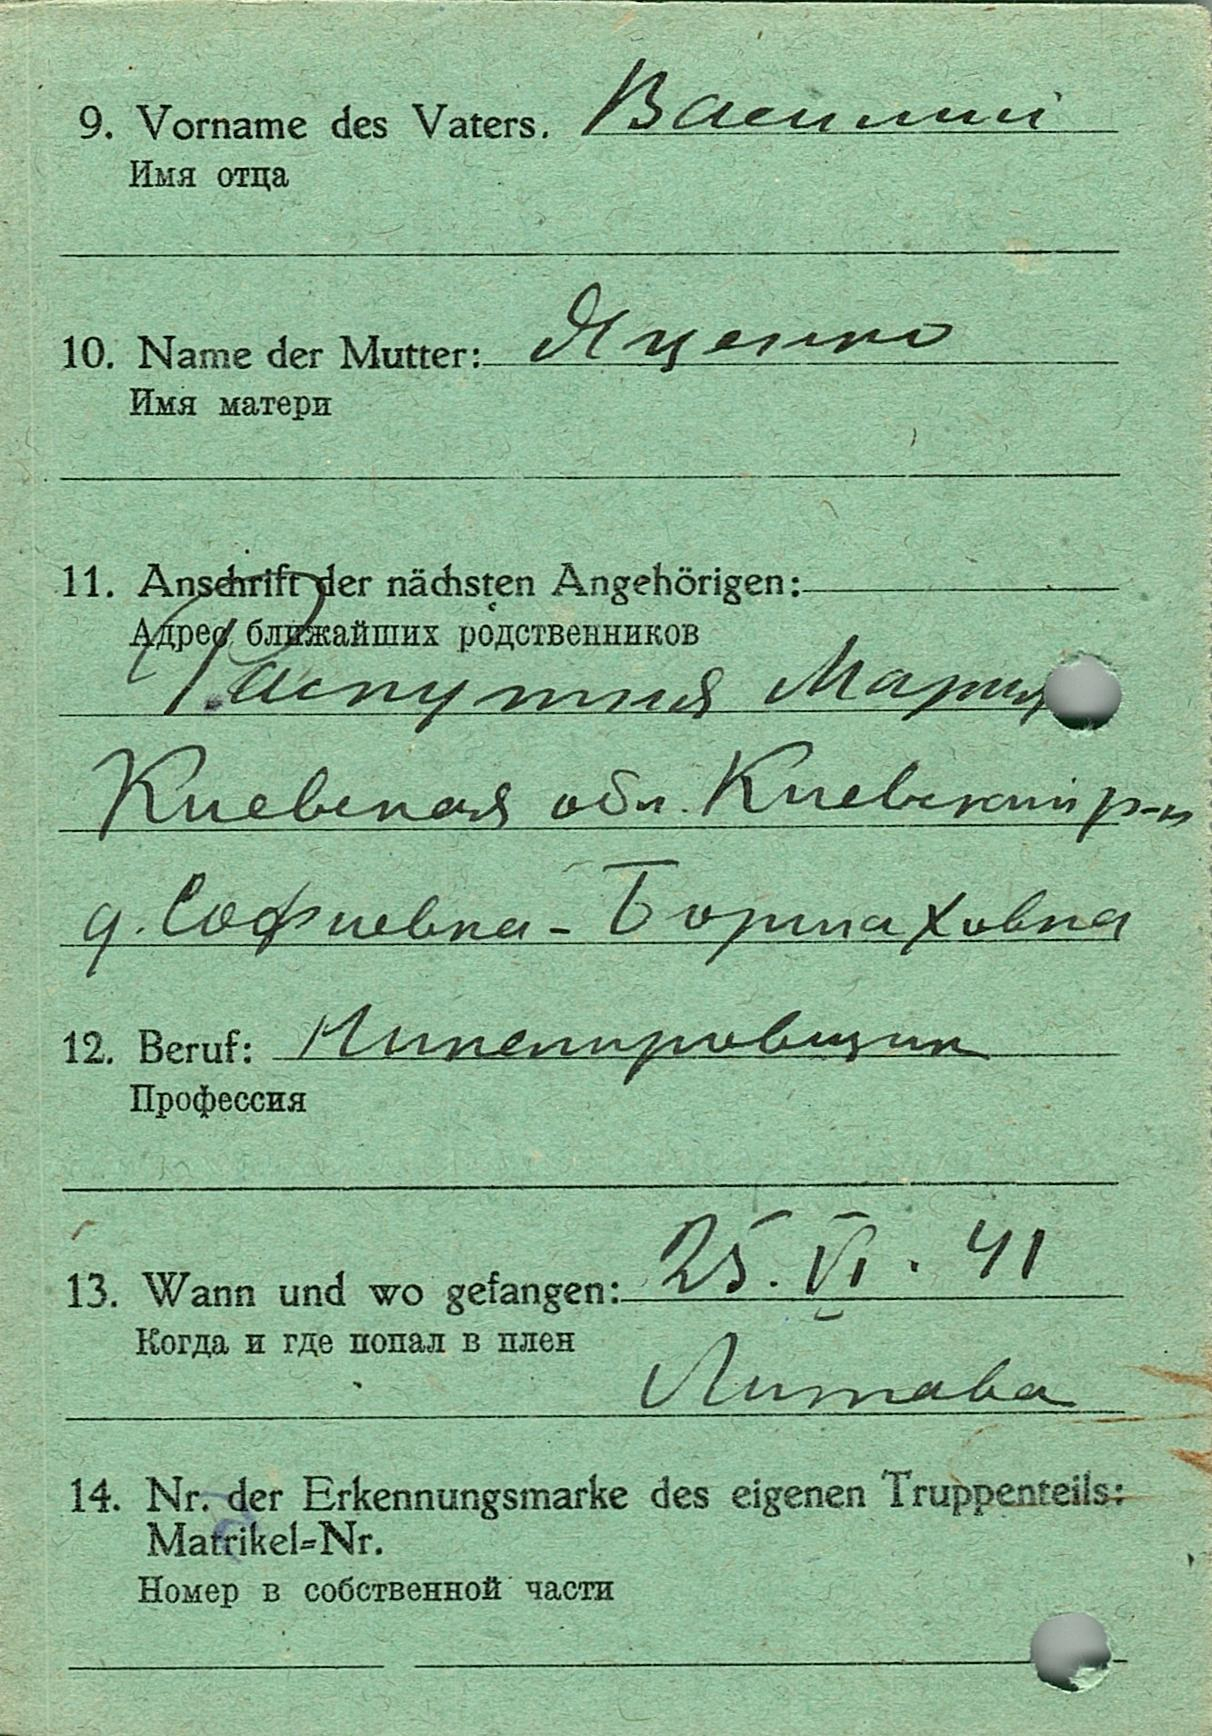 9. Vorname des Vaters. Василий
Имя отца
10. Name der Mutter: Яценко
Имя матери
11. Anschrift der nächsten Angehörigen:
Адрес ближайших родственников
Распутняя Мария
Киевская обл. Киевский р-н
д. Софиевка - Борщаховка
12. Beruf: Никелировщик
Профессия
13. Wann und wo gefangen: 25. VI. 41
Когда и где попал в плен
Литава
14. Nr. der Erkennungsmarke des eigenen Truppenteils:
Matrikel=Nr.
Номер в собственной части